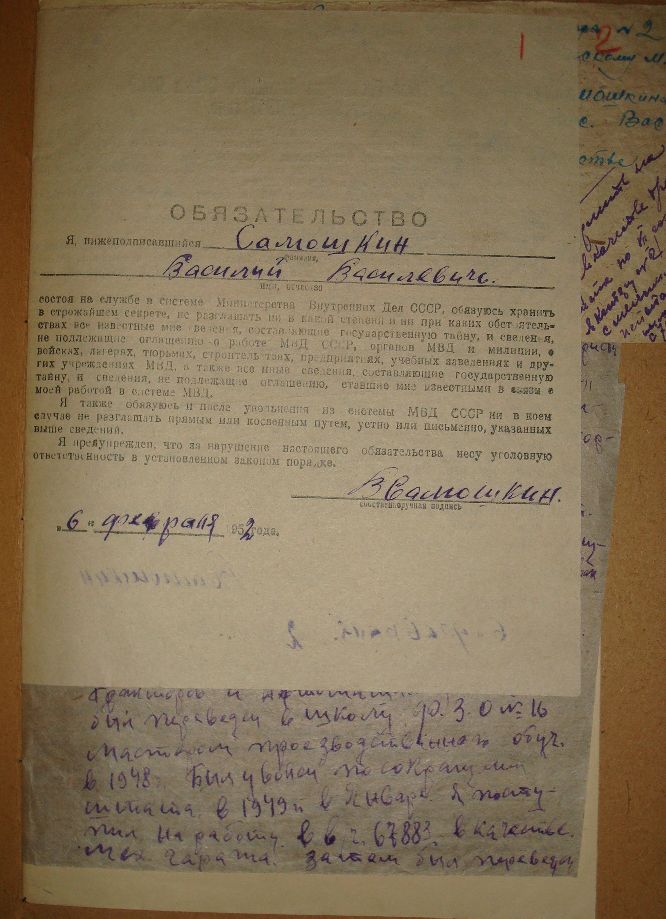 1
ОБЯЗАТЕЛЬСТВО
Я, нижеподписавшийся Самошкин
фамилия,
Василий Василевичь.
имя, отчество
состоя на службе в системе Министерства Внутренних Дел СССР, обязуюсь хранить
в строжайшем секрете, не разглашать ни в какой степени и ни при каких обстоятель-
ствах все известные мне сведения, составляющие государственную тайну, и сведения,
не подлежащие оглашению о работе МВД СССР, органов МВД и милиции, о
войсках, лагерях, тюрьмах, строительствах, предприятиях, учебных заведениях и дру-
гих учреждениях МВД, а также все иные сведения, составляющие государственную
тайну, и сведения, не подлежащие оглашению, ставшие мне известными в связи с
моей работой в системе МВД.
Я также обязуюсь и после увольнения из системы МВД СССР ни в коем
случае не разглашать прямым или косвенным путем, устно или письменно, указанных
выше сведений.
Я предупрежден, что за нарушение настоящего обязательства несу уголовную
ответственность в установленном законом порядке.
ВСамошкин.
собственноручная подпись
„6“ февраля 1952 года.
был переведен в школу ф.З.О № 16
мастером производственного обуч.
в 1948г. Был уволен по сокращению
штата. в 1949г в Январе я посту-
пил на работу в в.ч. 67883 в качестве
мех. гаража. затем был переведен
№ 2
2